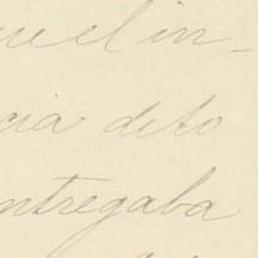 uel in-
cia de to
ntregaba